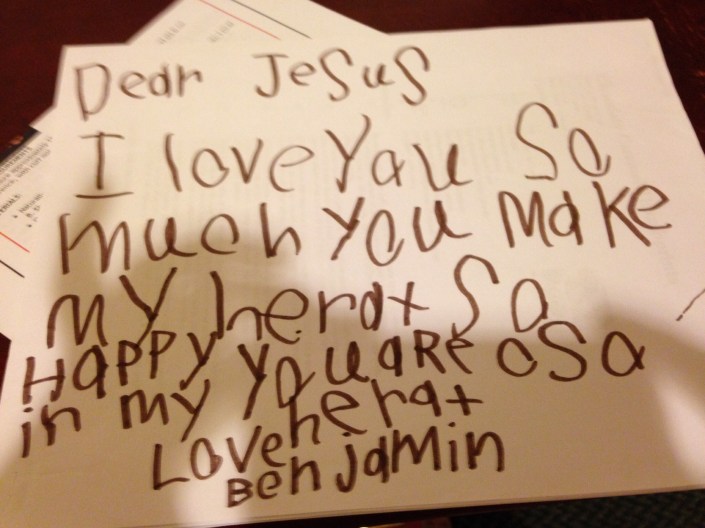 Dear Jesus
I love You So
much You make
my herat So
Happy You are oSo
in my herat
Love
Benjamin